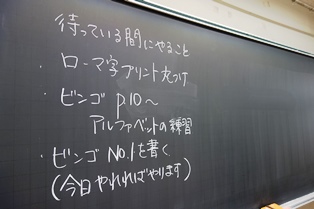 待っている間にやること
・ローマ字プリント丸つけ
・ビンゴ p.10～
アルファベットの練習
・ビンゴ No.1を書く
(今日やれればやります)